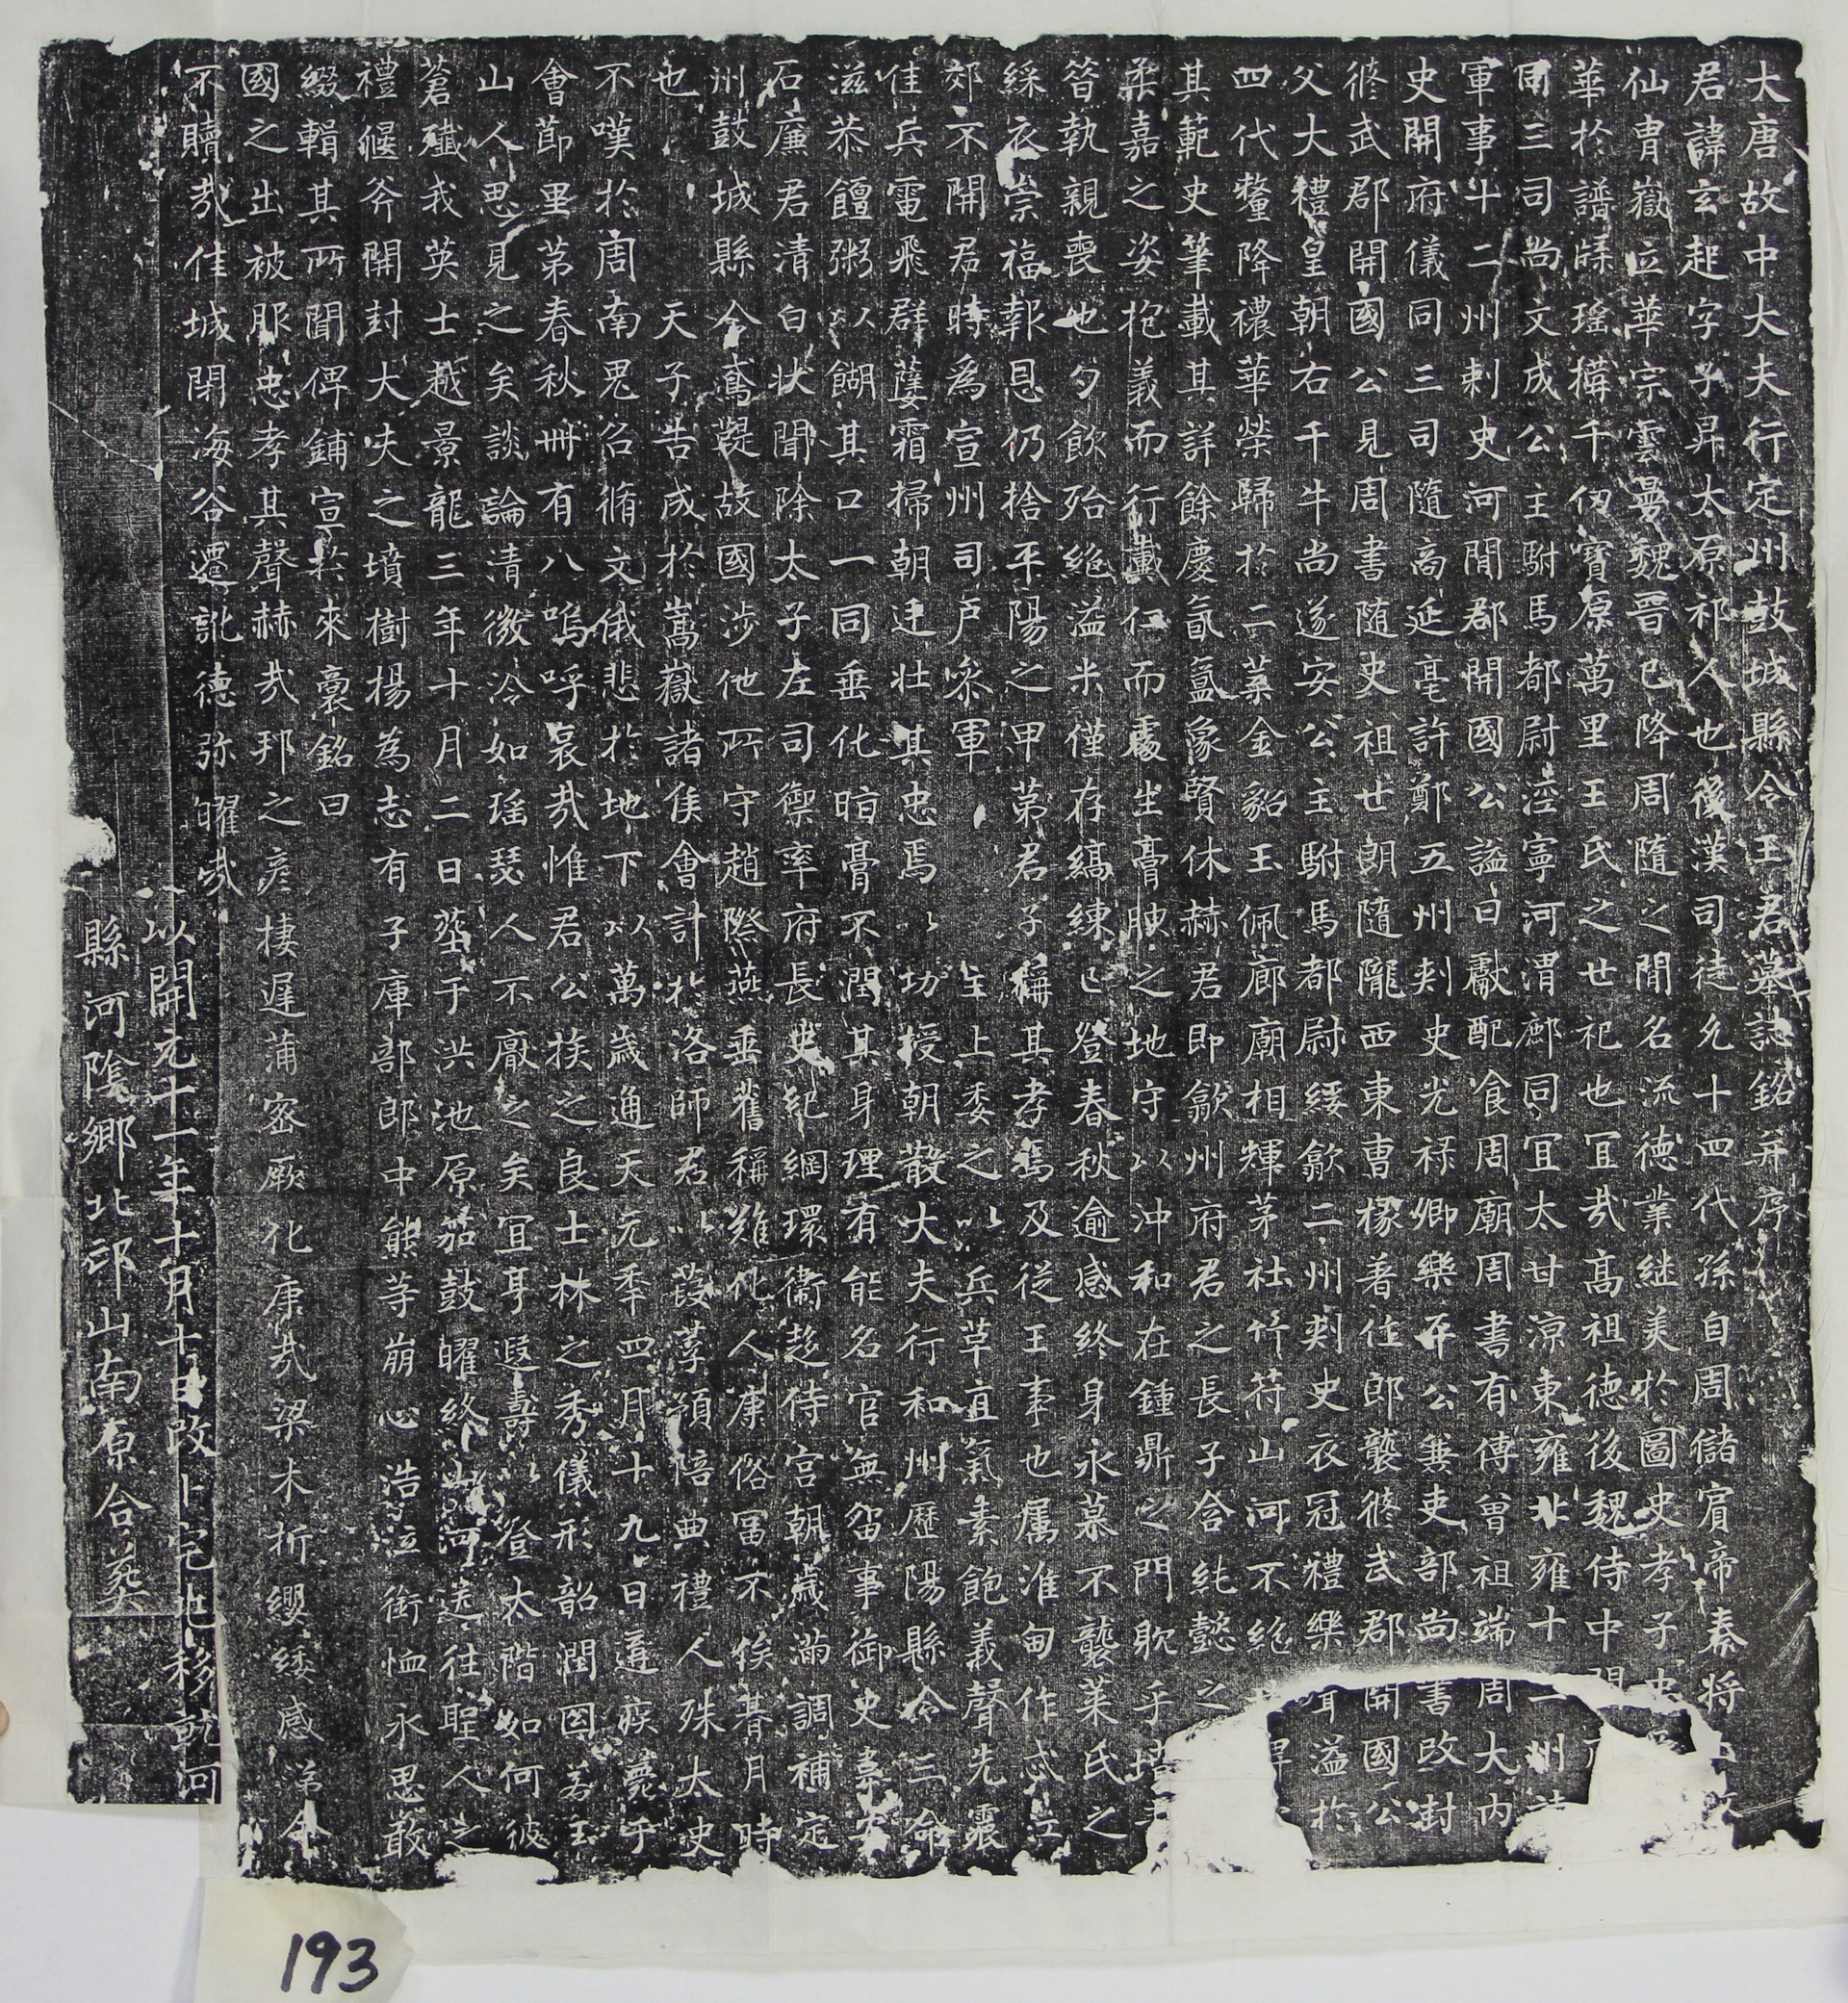 大唐故中大夫行定州鼓城縣令王君墓誌銘并序
君諱玄起字子昇太原祁人也後漢司徒允十四代孫自周儲賓帝秦將
仙胄嶽立華宗雲曼魏晉已降周隨之間名流德業継美於圖史孝子忠
華於譜牒瑶構千仞寶原萬里王氏之世祀也宜哉高祖德後魏侍中開
同三司尚文成公主駙馬都尉涇寧河渭鄜同宜太甘涼東雍北雍十二州諸
軍事十二州刺史河間郡開國公謚曰獻配食周廟周書有傳曾祖端周大内
史開府儀同三司隨高延亳許鄭五州刺史光禄卿樂平公兼吏部尚書改封
脩武郡開國公見周書随史祖世朗隨隴西東曹掾著作郎襲脩武郡開國公
父大禮皇朝右千牛尚遂安公主駙馬都尉綏歙二州刺史衣冠禮樂
四代釐降禯華榮歸於二葉金貂玉佩廊廟相輝茅社竹符山河不絶
其範史筆載其詳餘慶氤氲像賢休赫君即歙州府君之長子含純懿之
柔嘉之姿抱義而行戴仁而處生膏腴之地守以沖和在鍾鼎之門耽乎墳
筓執親喪也勺飲殆絶溢米僅存縞練已登春秋逾感終身永慕不襲菜氏之
綵衣宗福報恩仍捨平陽之甲第君子稱其孝焉及従王事也属淮甸作忒江
郊不開君時為宣州司戶叅軍 主上委之以兵草直氣素飽義聲先震
佳兵電飛群孽霜掃朝廷壯其忠焉以功授朝散大夫行和州歷陽縣令三命
滋恭饘粥以餬其口一同垂化晦膏不潤其身理有能名官無留事御史臺安
石廉君清白状聞除太子左司禦率府長史紀綱環衛趍侍宮朝歳滿調補定
州鼓城縣令鳶鶃故國涉他所守趙際燕垂舊稱難化人康俗冨不俟朞月時
也 天子告成於嵩嶽諸侯會計於洛師君以葭莩預陪典禮人殊太史
不嘆於周南鬼召脩文俄悲於地下以萬歳通天元秊四月十九日遘疾薨于
會節里第春秋卌有八嗚呼哀哉惟君公族之良士林之秀儀形韶潤圂若玉
山人思見之矣談論清微泠如瑶瑟人不厭之矣宜享遐壽以登太階如何彼
蒼殲我英士越景龍三年十月二日葬于洪池原笳鼓曜終山河送往聖人之
禮偃斧開封大夫之墳樹楊為志有子庫部郎中能等崩心浩泣銜恤永思敢
綴輯其所聞俾鋪宣於來裔銘曰
國之出被服忠孝其聲赫哉邦之彦棲遲蒲密厥化康哉梁木折纓緌感弟令
不贖哉佳城閉海谷遷訛德弥曜哉
以開元十一年十月十日改卜宅兆移就河
縣河陰鄉北邙山南原合葬